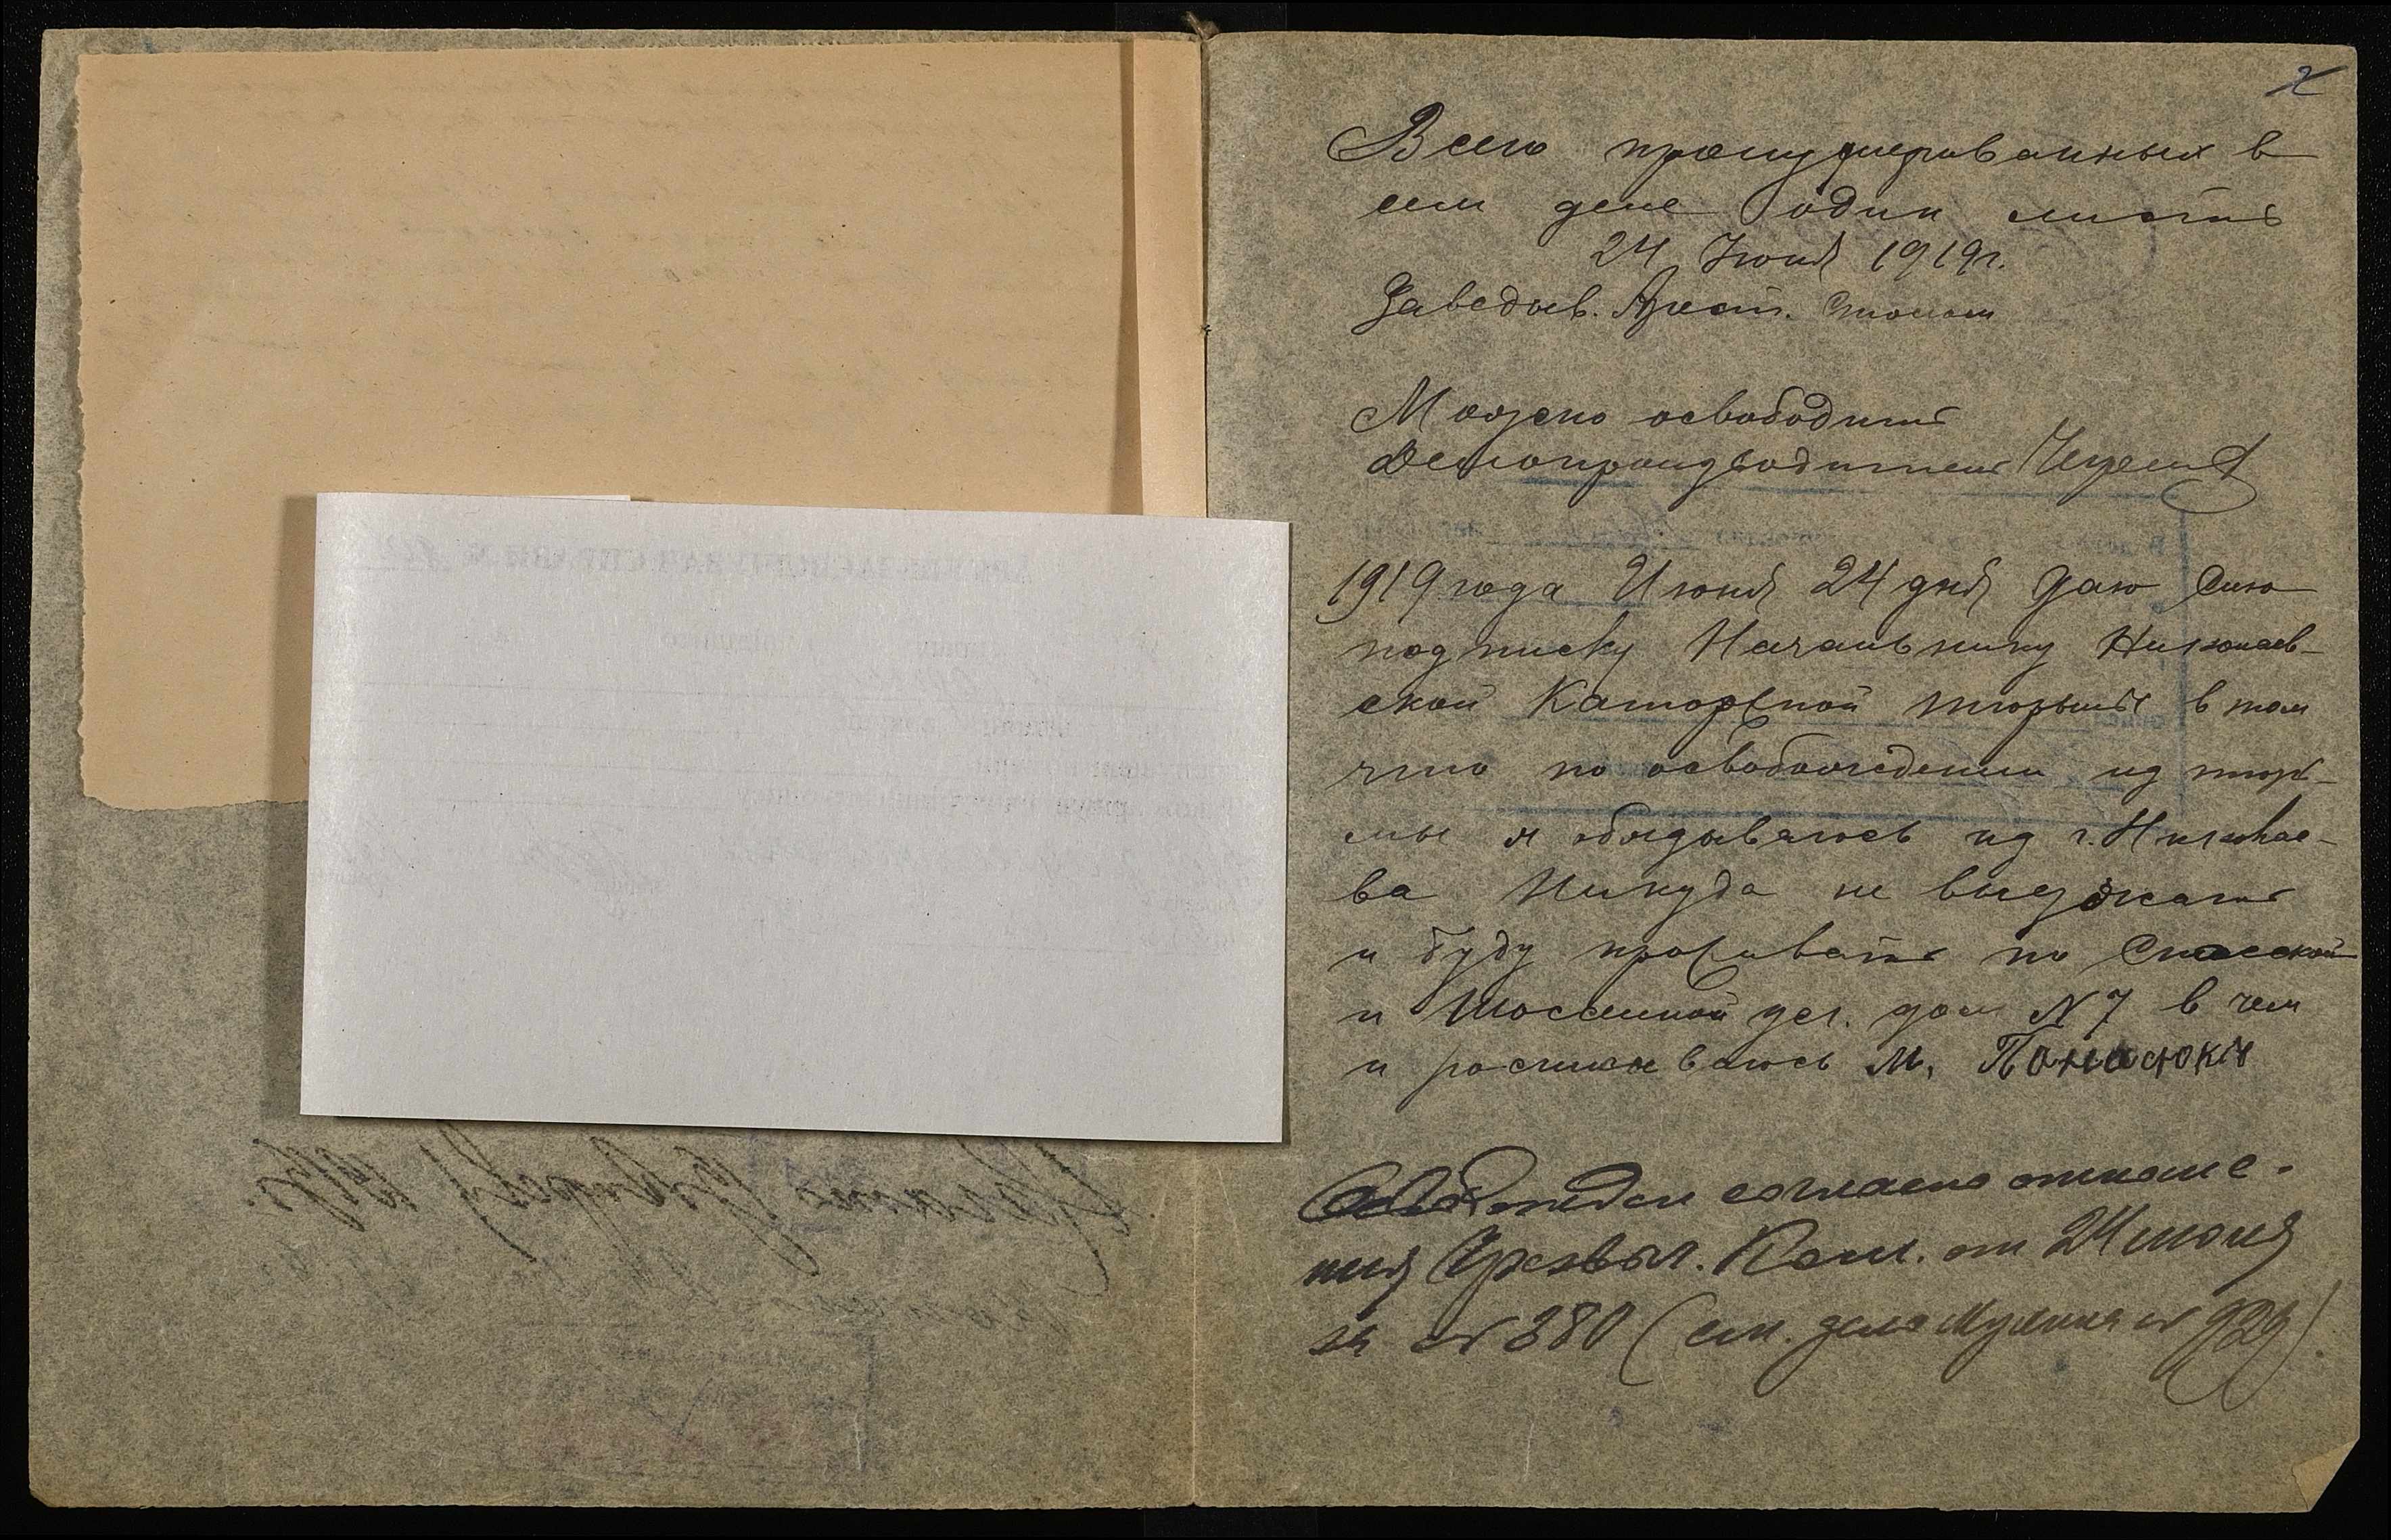 2
Всего пронумерованных в
сем деле один листъ
24 Июня 1919г.
Заведыв. Арест. Столом
Можно освободить
Делопроизводитель
1919 года Июня 24 дня даю сию
подписку Начальнику Николаев-
ской Каторжной тюрьмы в том
что по освобождении из тюрь-
мы я обязываюсь из г. Николае-
ва Никуда не выезжать
и буду проживать по Спасской
и Шоссейной ул. дом N 7 в чем
и росписываюсь М. Панасюкъ
Освобожден согласно отноше-
ния Чрезвыч. Ком. от 24 июня
за № 380 (см. дело № 929).